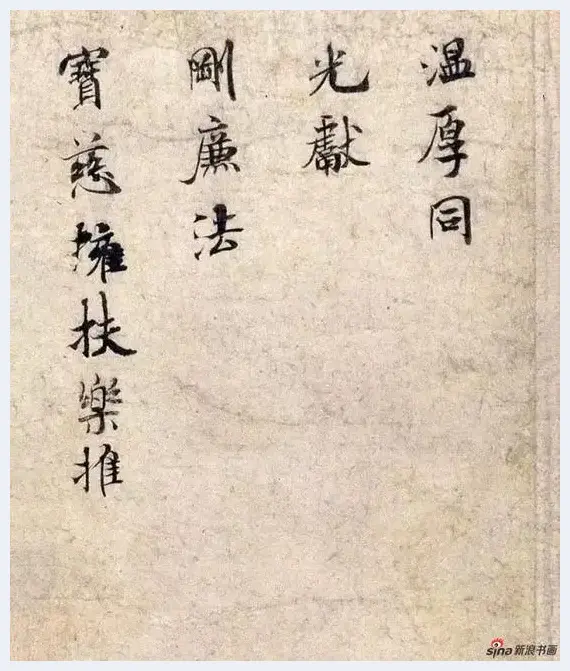 温厚同
光獻
剛廉法
寶慈擁扶樂推
sina 新浪书画